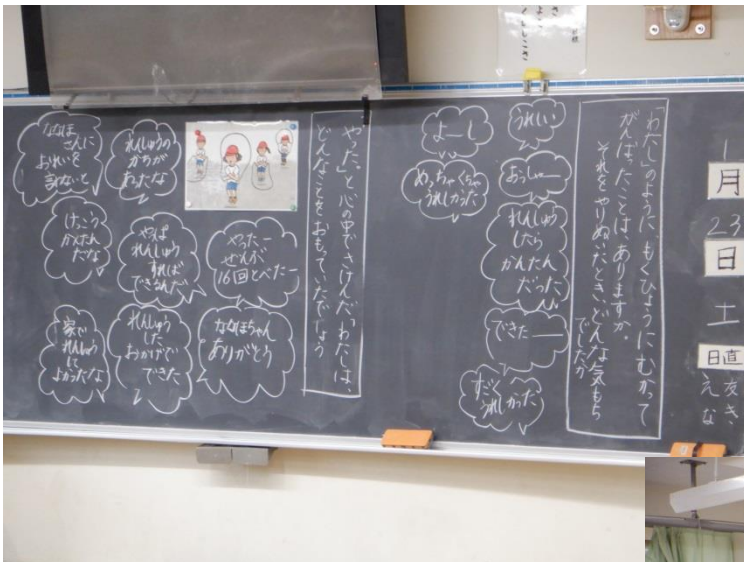 1
月
23
日
土
日直
「わたし」のように もくひょうに むかって
がんばったことは ありますか。
それをやりぬいたとき、どんな気もち
でしたか
うれしい
おっしゃー
れんしゅう
したら
かんたん
だった
できたー
すごく
うれしかった
よーし
めっちゃくちゃ
うれしかった
やった、と心の中でさけんだ「わたし」は、
どんなことをおもっていたでしょう
やったー
ぜんぶ
16回とべたー
ななほちゃん
ありがとう
れんしゅうの
かちが
あったな
やっぱ
れんしゅう
すれば
できるんだ
れんしゅう
した
おかげで
できた
ななほ
さんに
おれいを
言わないと
けっこう
かんたん
だな
家で
れんしゅう
して
よかったな